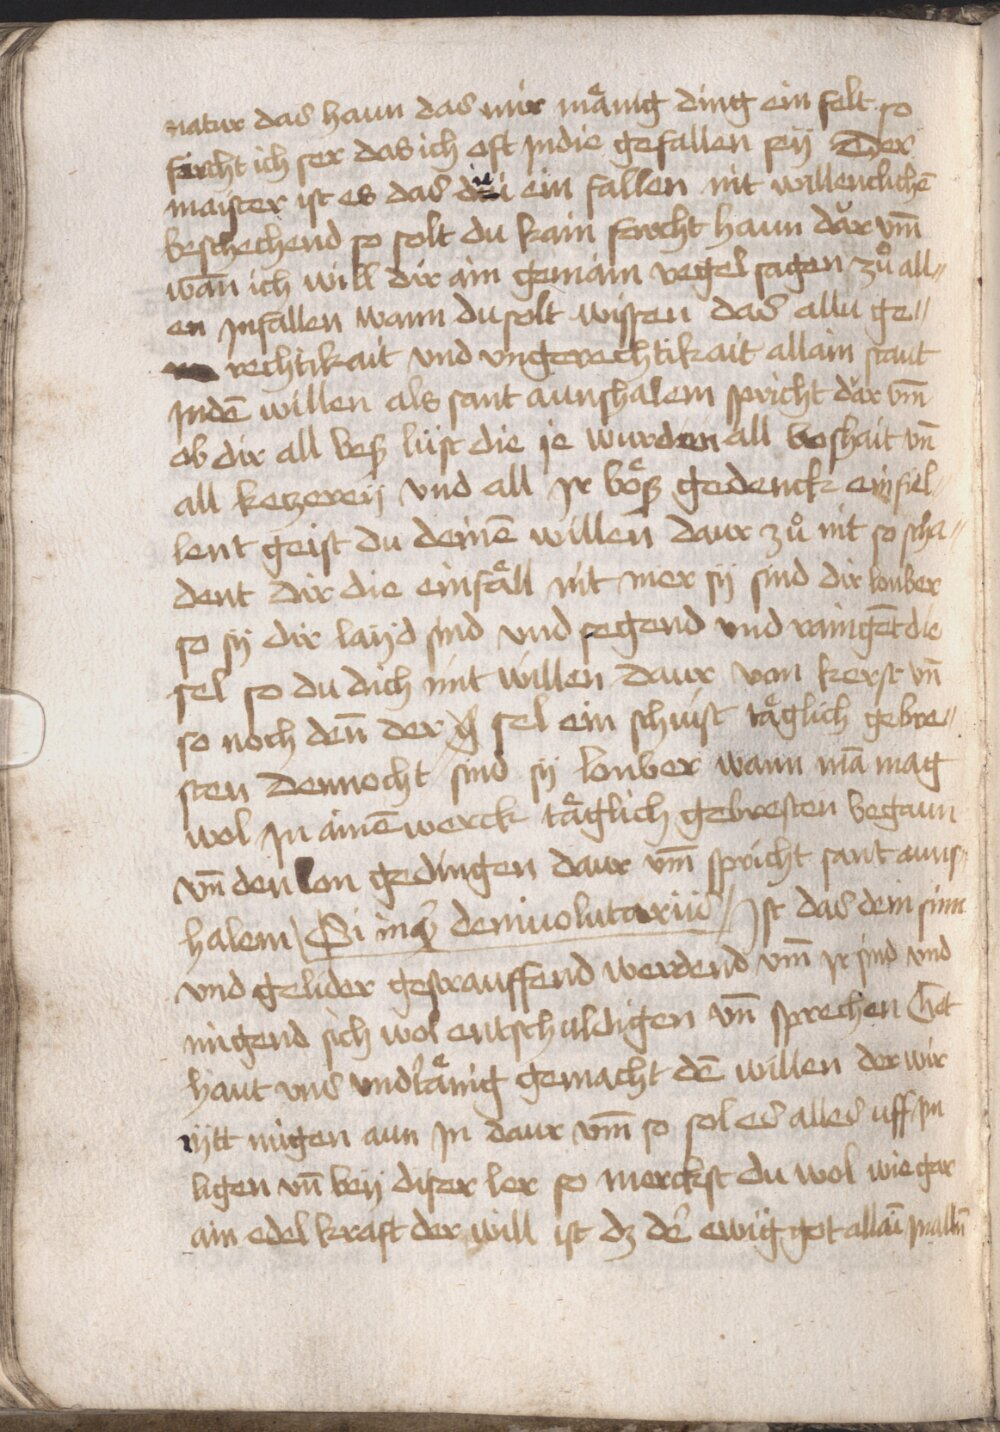 natur das haun das mir mänig ding ein felt so
fircht ich ser das ich oft jn die gefallen seÿ Der
maister ist es das die ein fallen nit willenclichē
beschechend so solt du kain forcht haun dar vm̄
wan̄ ich will dir ain gemain regel sagen zů all〃
en jnfallen wann du solt wissen das allu ge〃
rechtikait vnd vngerechtikait allain staut
jn dē willen als sant aunshalem spricht dar vm̄
ob dir all beß lüst die ie wurden all boshait vn̄
all ketzereÿ vnd all jr böß gedenck ein fiel〃
lent geist du deinē willen daur zů nit so scha〃
dent dir die einfäll nit mer sÿ sind dir lonber
so sÿ dir laÿd sind vnd fegend vnd rainigēt die
sel so du dich mit willen daur von kerst vn̄
so noch den̄ der sel ein schuist täglich gebre〃
sten dennocht sind sÿ lonber wann mā mag
wol jn ainē werck täglich gebresten begaun
vn̄ den lon gedingen daur vm̄ spricht sant auns〃
halem Si inq̄ deinuolutariis / Jst das dein sinn
vnd gelider gestrauffend werdend vm̄ jr sind vnd
mígend sich wol entschuldigen vn̄ sprechen Get
haut vns vndtänig gemacht dē willen der wir
nÿtt mígen aun jn daur vm̄ so sol es alles uff jm
ligen vn̄ beÿ diser ler so merckst du wol wie gar
ain edel kraft der will ist dz dē ewig got allain